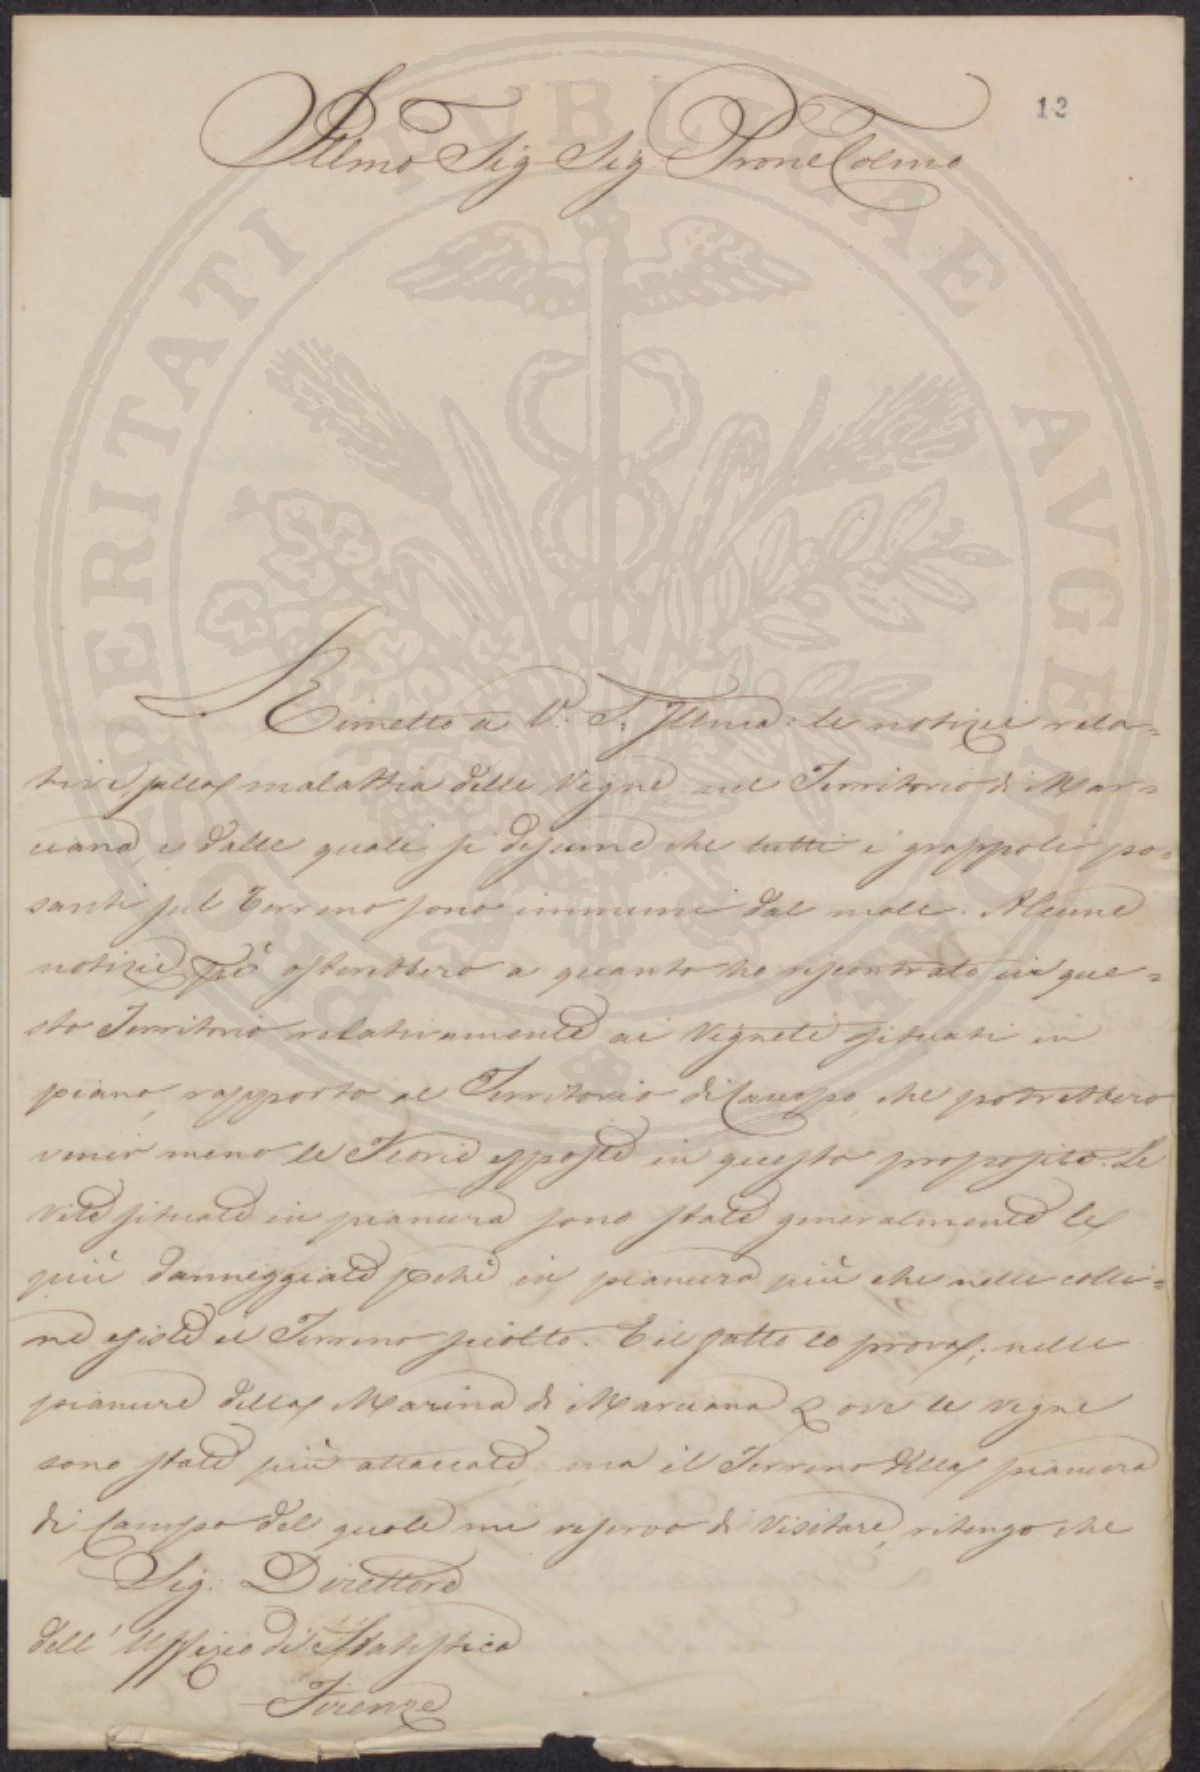 12
Illmo Sig Sig. Prone Colmo
Rimetto a V. S. Illma: le notizie rela=
tive alla malattia delle Vigne nel Territorio di Mar=
ciana, e dalle quali si desume che tutti i grappoli po=
santi sul terreno sono immuni dal male. Alcune
notizie però osterebbero a quanto ho riscontrato in que=
sto Territorio relativamente ai Vigneti situati in
piano, rapporto al Territorio di Campo, che potrebbero
venir meno le Teorie esposte in questo proposito. Le
vite situate in pianura sono state generalmente le
più danneggiate pchè in pianura più che nelle colli=
ne esiste il Terreno sciolto. E il fatto lo prova; nelle
pianure della Marina di Marciana ove le vigne
sono state più attaccate, ma il Terreno della pianura
di Campo del quale mi riservo di visitare, ritengo che
Sig. Direttore
dell' Uffizio di Statistica
Firenze
PROSPERITATI PVBLICAE AVGENDAE